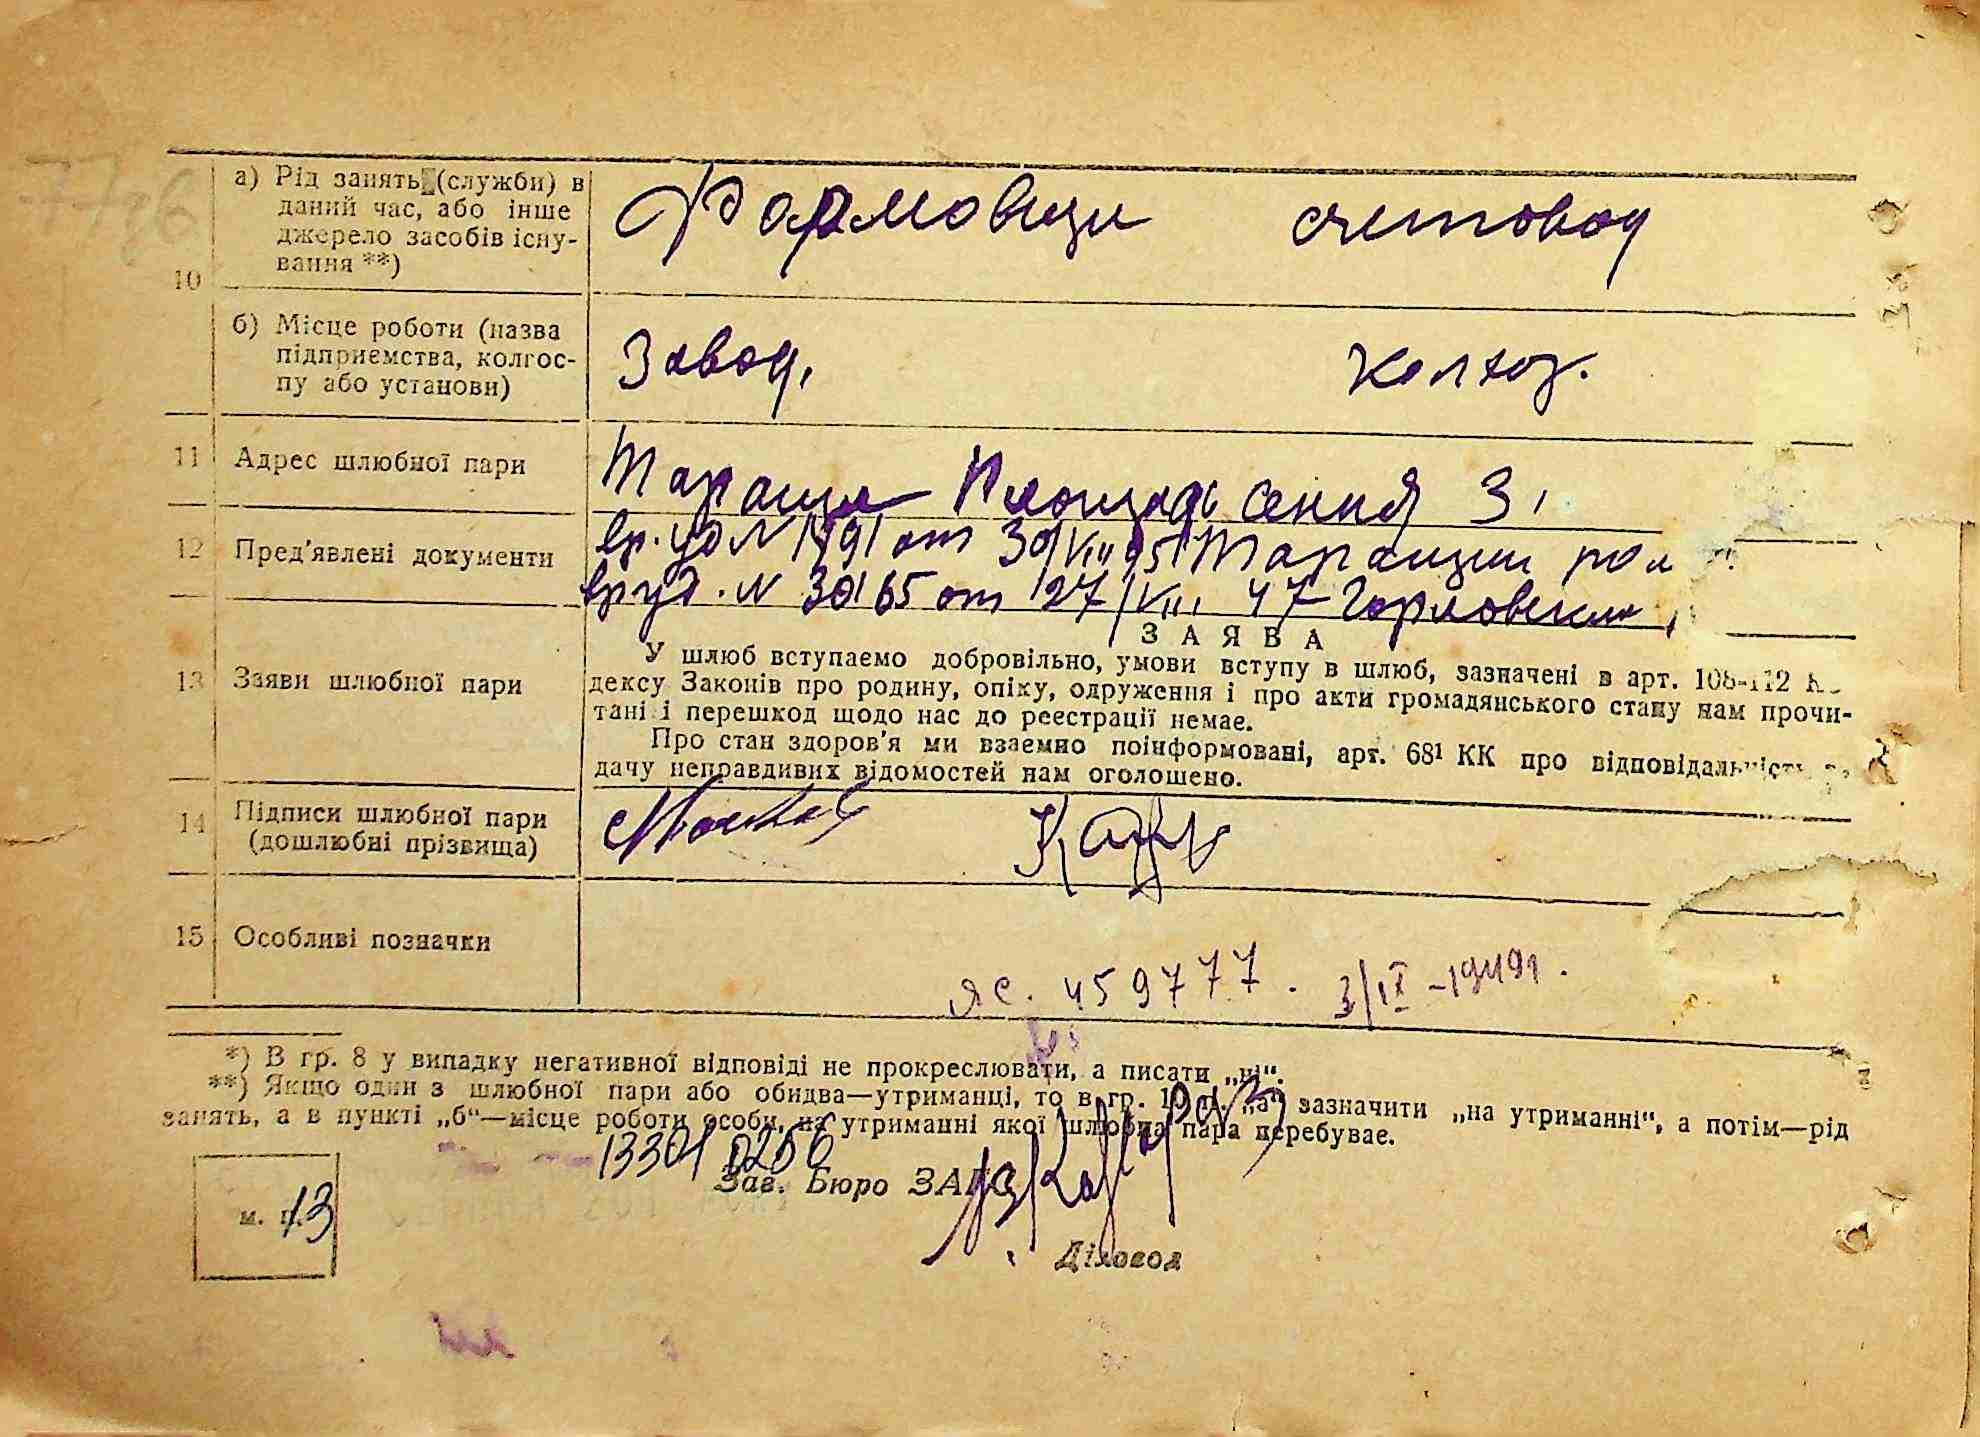 а) Рід занять (служби) в
даний час, або інше
джерело засобів існу-
вання **)
Формовщи счетовод
10
б) Місце роботи (назва
підприємства, колгос-
пу або установи)
Завод. Колхоз.
11 Адрес шлюбної пари
Тараща 3
12 Пред'явлені документи
вр. уд N от 30/VIII
вр уд. N 30165 от 27/VIII 47
13 Заяви шлюбної пари
ЗАЯВА
У шлюб вступаємо добровільно, умови вступу в шлюб, зазначені в арт. 108-112
дексу Законів про родину, опіку, одруження і про акти громадянського стану нам прочи-
тані і перешкод щодо нас до реєстрації немає.
Про стан здоров'я ми взаємно поінформовані, арт. 68¹ КК про відповідальність
дачу неправдивих відомостей нам оголошено.
14 Підписи шлюбної пари
(дошлюбні прізвища)
15 Особливі позначки
яс. 459777.
*) В гр. 8 у випадку негативної відповіді не прокреслювати, а писати „ні“.
**) Якщо один з шлюбної пари або обидва—утриманці, то в гр. 10 п. „а“ зазначити „на утриманні“, а потім—рід
занять, а в пункті „б“—місце роботи особи, на утриманні якої шлюбна пара перебуває.
13301 0256
Зав. Бюро ЗАГС
м. п. 13
Діловод